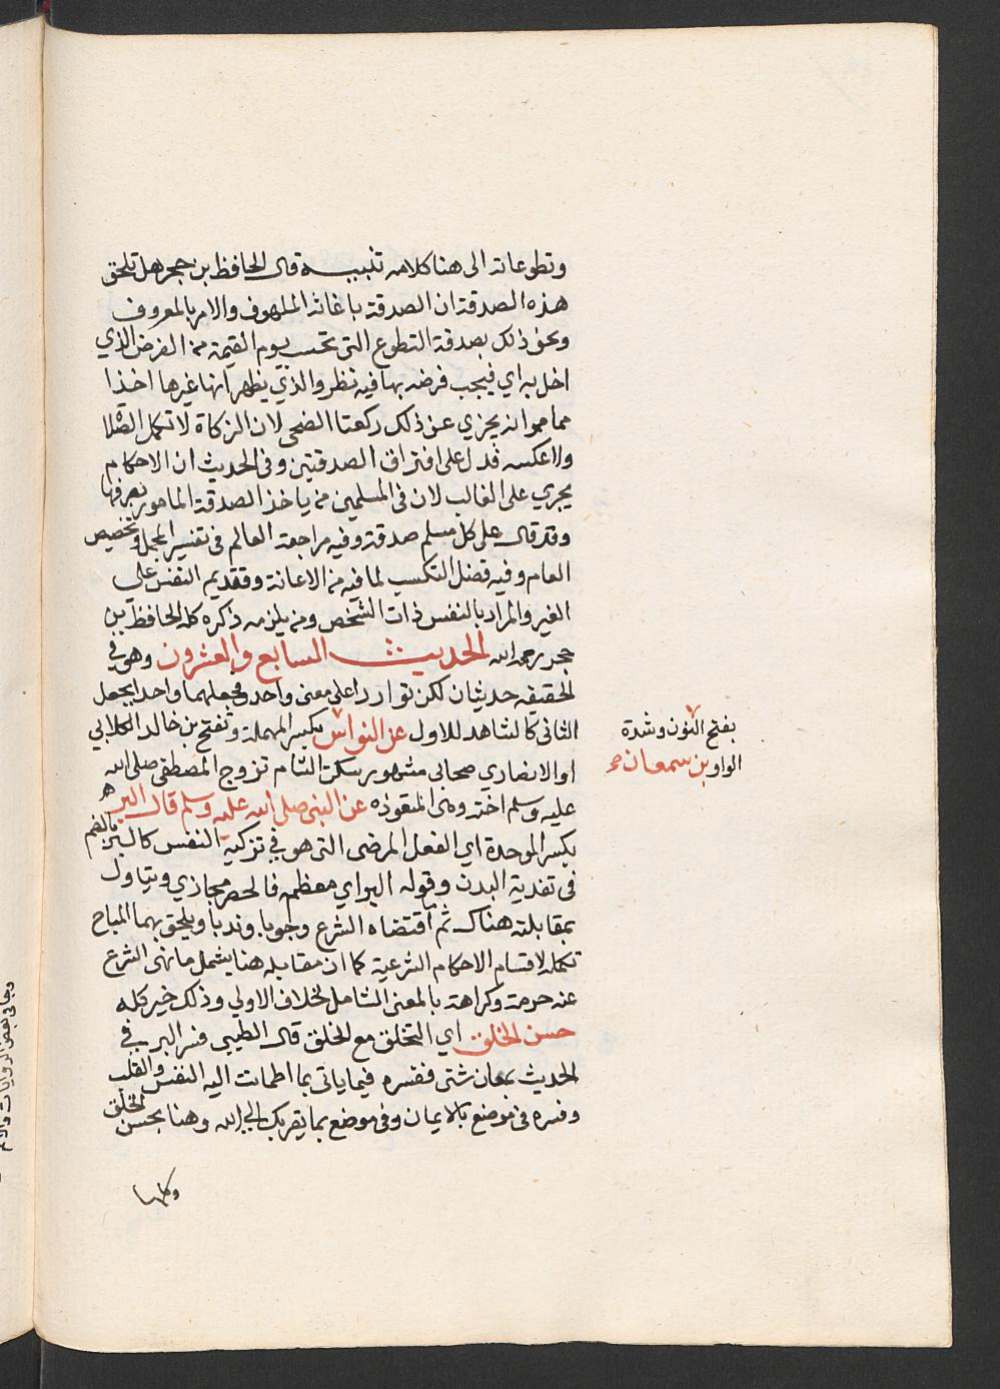 وتطوعاته الى هنا كلامه تنبيه قال الحافظ بن حجر هل تلحق
هذه الصدقة ان الصدقة باغاثة الملهوف والامر بالمعروف
ونحو ذلك بصدقة التطوع التي تحسب يوم القيمة من الفرض الذي
اخل به اي فيجب فرضه بها فيه نظر والذي يظهر انها غيرها اخذا
مما مر انه يجزي عن ذلك ركعتا الضحى لان الزكاة لا تكمل الصلاة
ولا عكسه فدل على افتراق الصدقتين وفى الحديث ان الاحكام
يجري على الغالب لان فى المسلمين من ياخذ الصدقة المامور بصرفها
وقد قال على كل مسلم صدقة وفيه مراجعة العالم فى تفسير المجمل وتخصيص
العام وفيه فضل التكسب لما فيه من الاعانة وتقديم النفس على
الغير والمراد بالنفس ذات الشخص ومن يلزمه ذكره كله الحافظ بن
حجر رحمه الله الحديث السابع والعشرون وهو في
الحقيقه حديثان لكن توارداعلى معنى واحد فجعلهما واحدا يجعل
الثانى كالشاهد للاول عن النواس بكسر المهملة وتفتح بن خالد الكلابي
او الانصاري صحابى مشهور سكن الشام تزوج المصطفى صلى الله
عليه وسلم اخته وهى المتعوذه عن النبى صلى الله عليه وسلم قال البر
بكسر الموحدة اي الفعل المرضى التى هو في تزكية النفس كالبر بالضم
فى تغذية البدن وقوله البر اي معظمه فالحصر مجازي ويتناول
بمقابلته هناك ثم اقتضاه الشرع وجوبا وندبا ويلحق بهما المباح
تكمله لاقسام الاحكام الشرعية كما ان مقابله هنا يشمل ما نهى الشرع
عنه حرمة وكراهة بالمعنى الشامل لخلاف الاولي وذلك خير كله
حسن الخلق اي التخلق مع الخلق قال الطيبي فسر البر في
الحديث بمعان شتى ففسره فيما ياتى بما اطمانت اليه النفس والقلب
وفسره فى موضع بالايمان وفى موضع بما يقربك الي الله وهنا بحسن الخلق
وكلها
بفتح النون وشدة
الواو بن سمعان